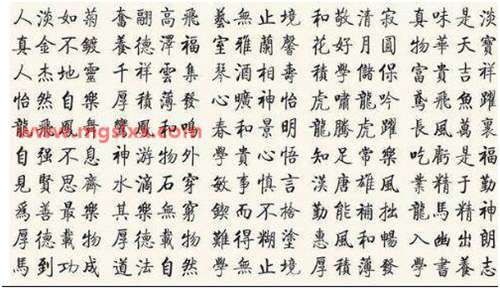 人淡如菊 奮翮高飛 藝無止境 和敬清寂 真味是淡
真金不鍍 養德澤福 室雅蘭馨 花好月圓 物華天寶
人杰地靈 千祥雲集 琴酒相壽 積學儲保 富貴吉祥
怡然自樂 厚積薄發 心曠神怡 虎嘯龍吟 鳶飛魚躍
龍飛鳳舞 鸞鳳和鳴 春和景明 龍騰虎躍 長風萬裏
www.mgslxs.com
自强不息 神游物外 學貴心悟 知足常樂 吃虧是福
見賢思齊 水滴石穿 敏事慎言 漢唐雄風 業精于勤
爲善最樂 其樂無窮 鍥而不捨 勤能補拙 龍馬精神
厚德載物 厚德載物 難得糊塗 惠風和暢 入幽出朗
馬到功成 道法自然 學無止境 厚積薄發 學書養志